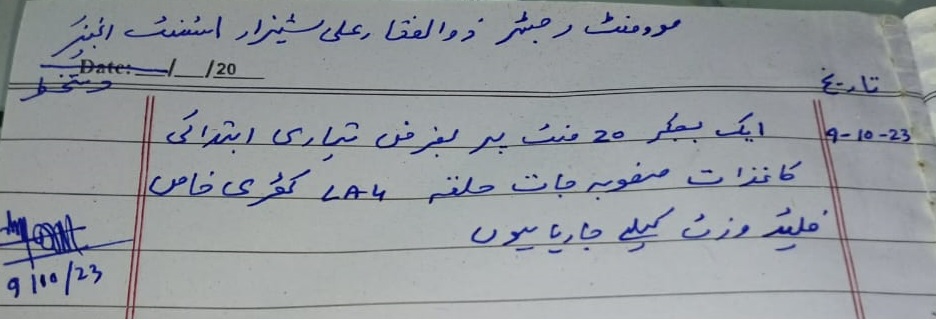 موومنٹ رجسٹر ذوالفقار علی شہزاد اسسٹنٹ انجینئر
Date: __/__/20
تاریخ دستخط
9-10-23 ایک بجکر 20 منٹ پر بغرض تیاری ابتدائی
کاغذات منصوبہ جات حلقہ LA4 کھڑی خاص
فیلڈ وزٹ کیلئے جا رہا ہوں
9/10/23